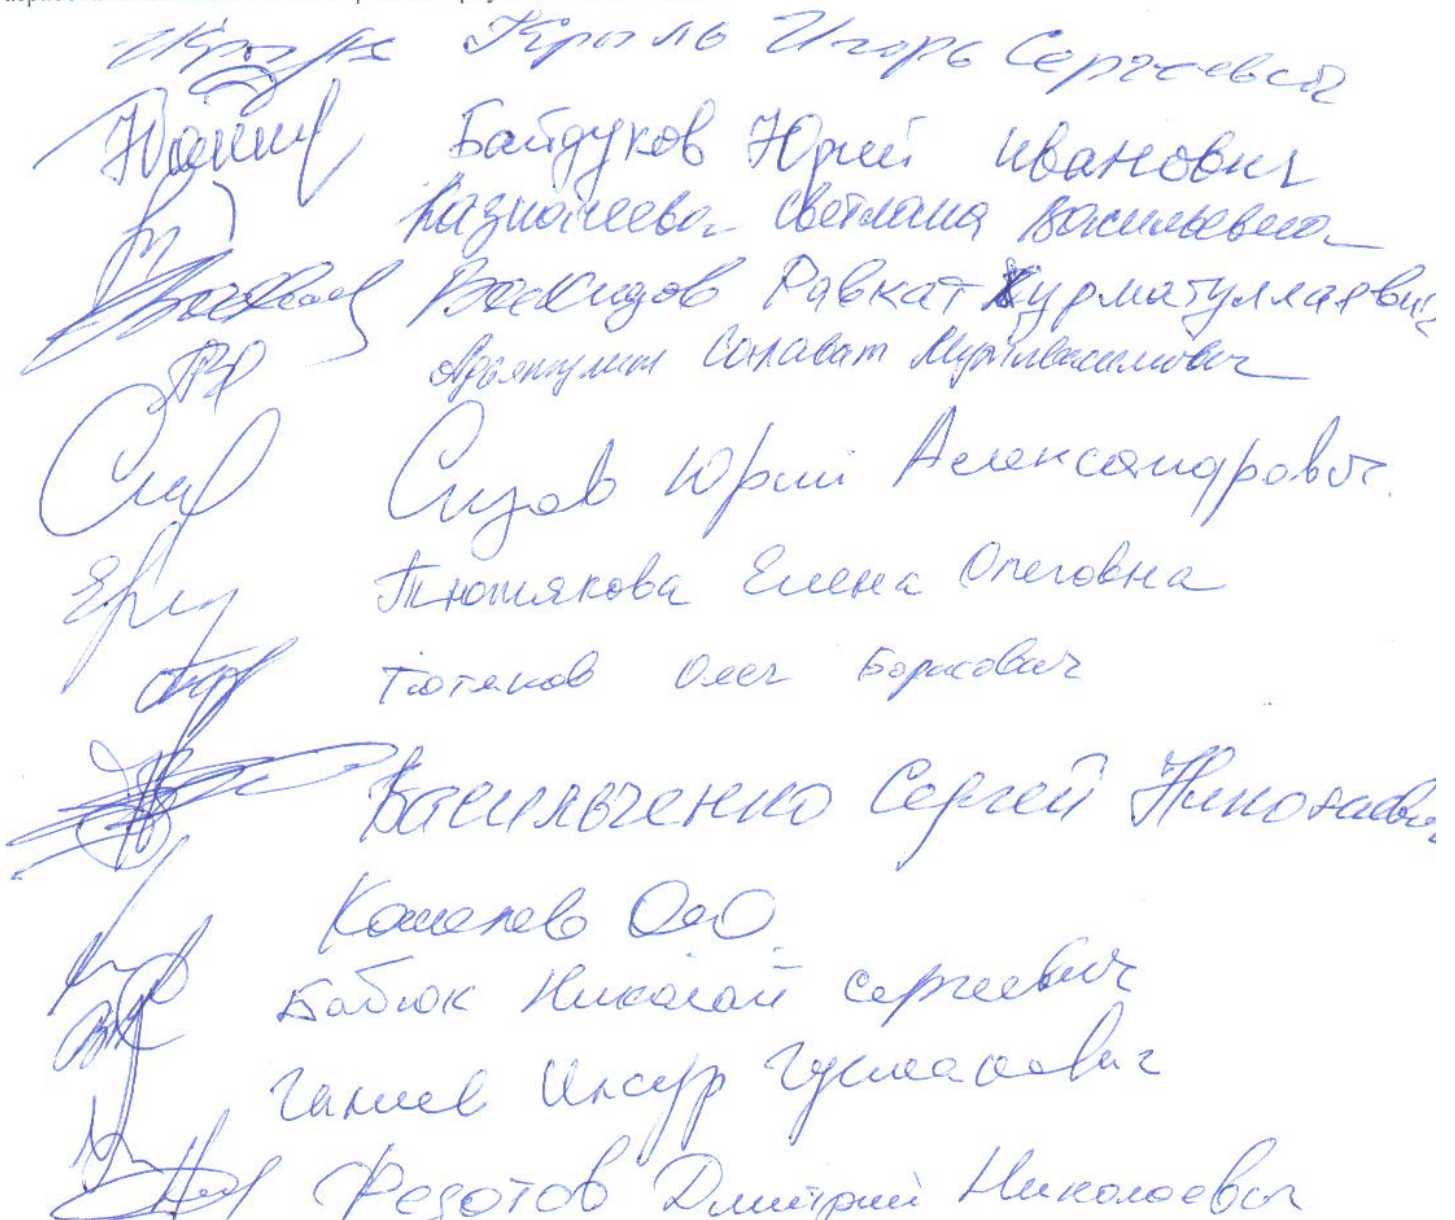 Кроль Игорь Сергеевич
Байдуков Юрий Иванович
Казначеева Светлана Васильевна
Вахидов Равкат Хурматуллаевич
Салават
Сизов Юрий Александрович
Тютякова Елена Олеговна
Тютяков Олег Борисович
Васильченко Сергей Николаевич
Кошелев О.О.
Бабюк Николай Сергеевич
Ганиев Инсур Гусманович
Федотов Дмитрий Николаевич